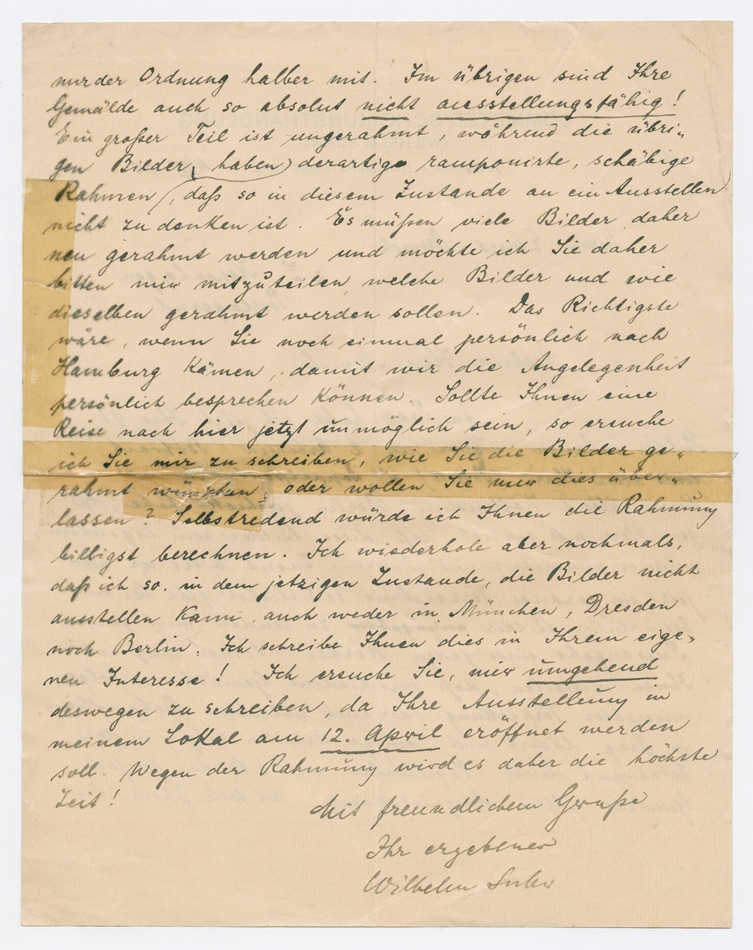 nur der Ordnung halber mit. Im übrigen sind Ihre
Gemälde auch so absolut nicht ausstellungsfähig!
Ein großer Teil ist ungerahmt, während die übri-
gen Bilder (haben) derartige ramponirte, schäbige
Rahmen, daß so in diesem Zustande an ein Ausstellen
nicht zu denken ist. Es müßen viele Bilder daher
neu gerahmt werden und möchte ich Sie daher
bitten mir mitzuteilen, welche Bilder und wie
dieselben gerahmt werden sollen. Das Richtigste
wäre, wenn Sie noch einmal persönlich nach
Hamburg kämen, damit wir die Angelegenheit
persönlich besprechen können. Sollte Ihnen eine
Reise nach hier jetzt unmöglich sein, so ersuche
ich Sie mir zu schreiben, wie Sie die Bilder ge-
rahmt wünschen, oder wollen Sie mir dies über-
lassen? Selbstredend würde ich Ihnen die Rahmung
billigst berechnen. Ich wiederhole aber nochmals,
daß ich so in dem jetzigen Zustande, die Bilder nicht
ausstellen kann, auch weder in München, Dresden
noch Berlin. Ich schreibe Ihnen dies in Ihrem eige-
nen Interesse! Ich ersuche Sie, mir umgehend
deswegen zu schreiben, da Ihre Ausstellung in
meinem Lokal am 12. April eröffnet werden
soll. Wegen der Rahmung wird es daher die höchste
Zeit!
Mit freundlichem Gruße
Ihr ergebener
Wilhelm Suhr